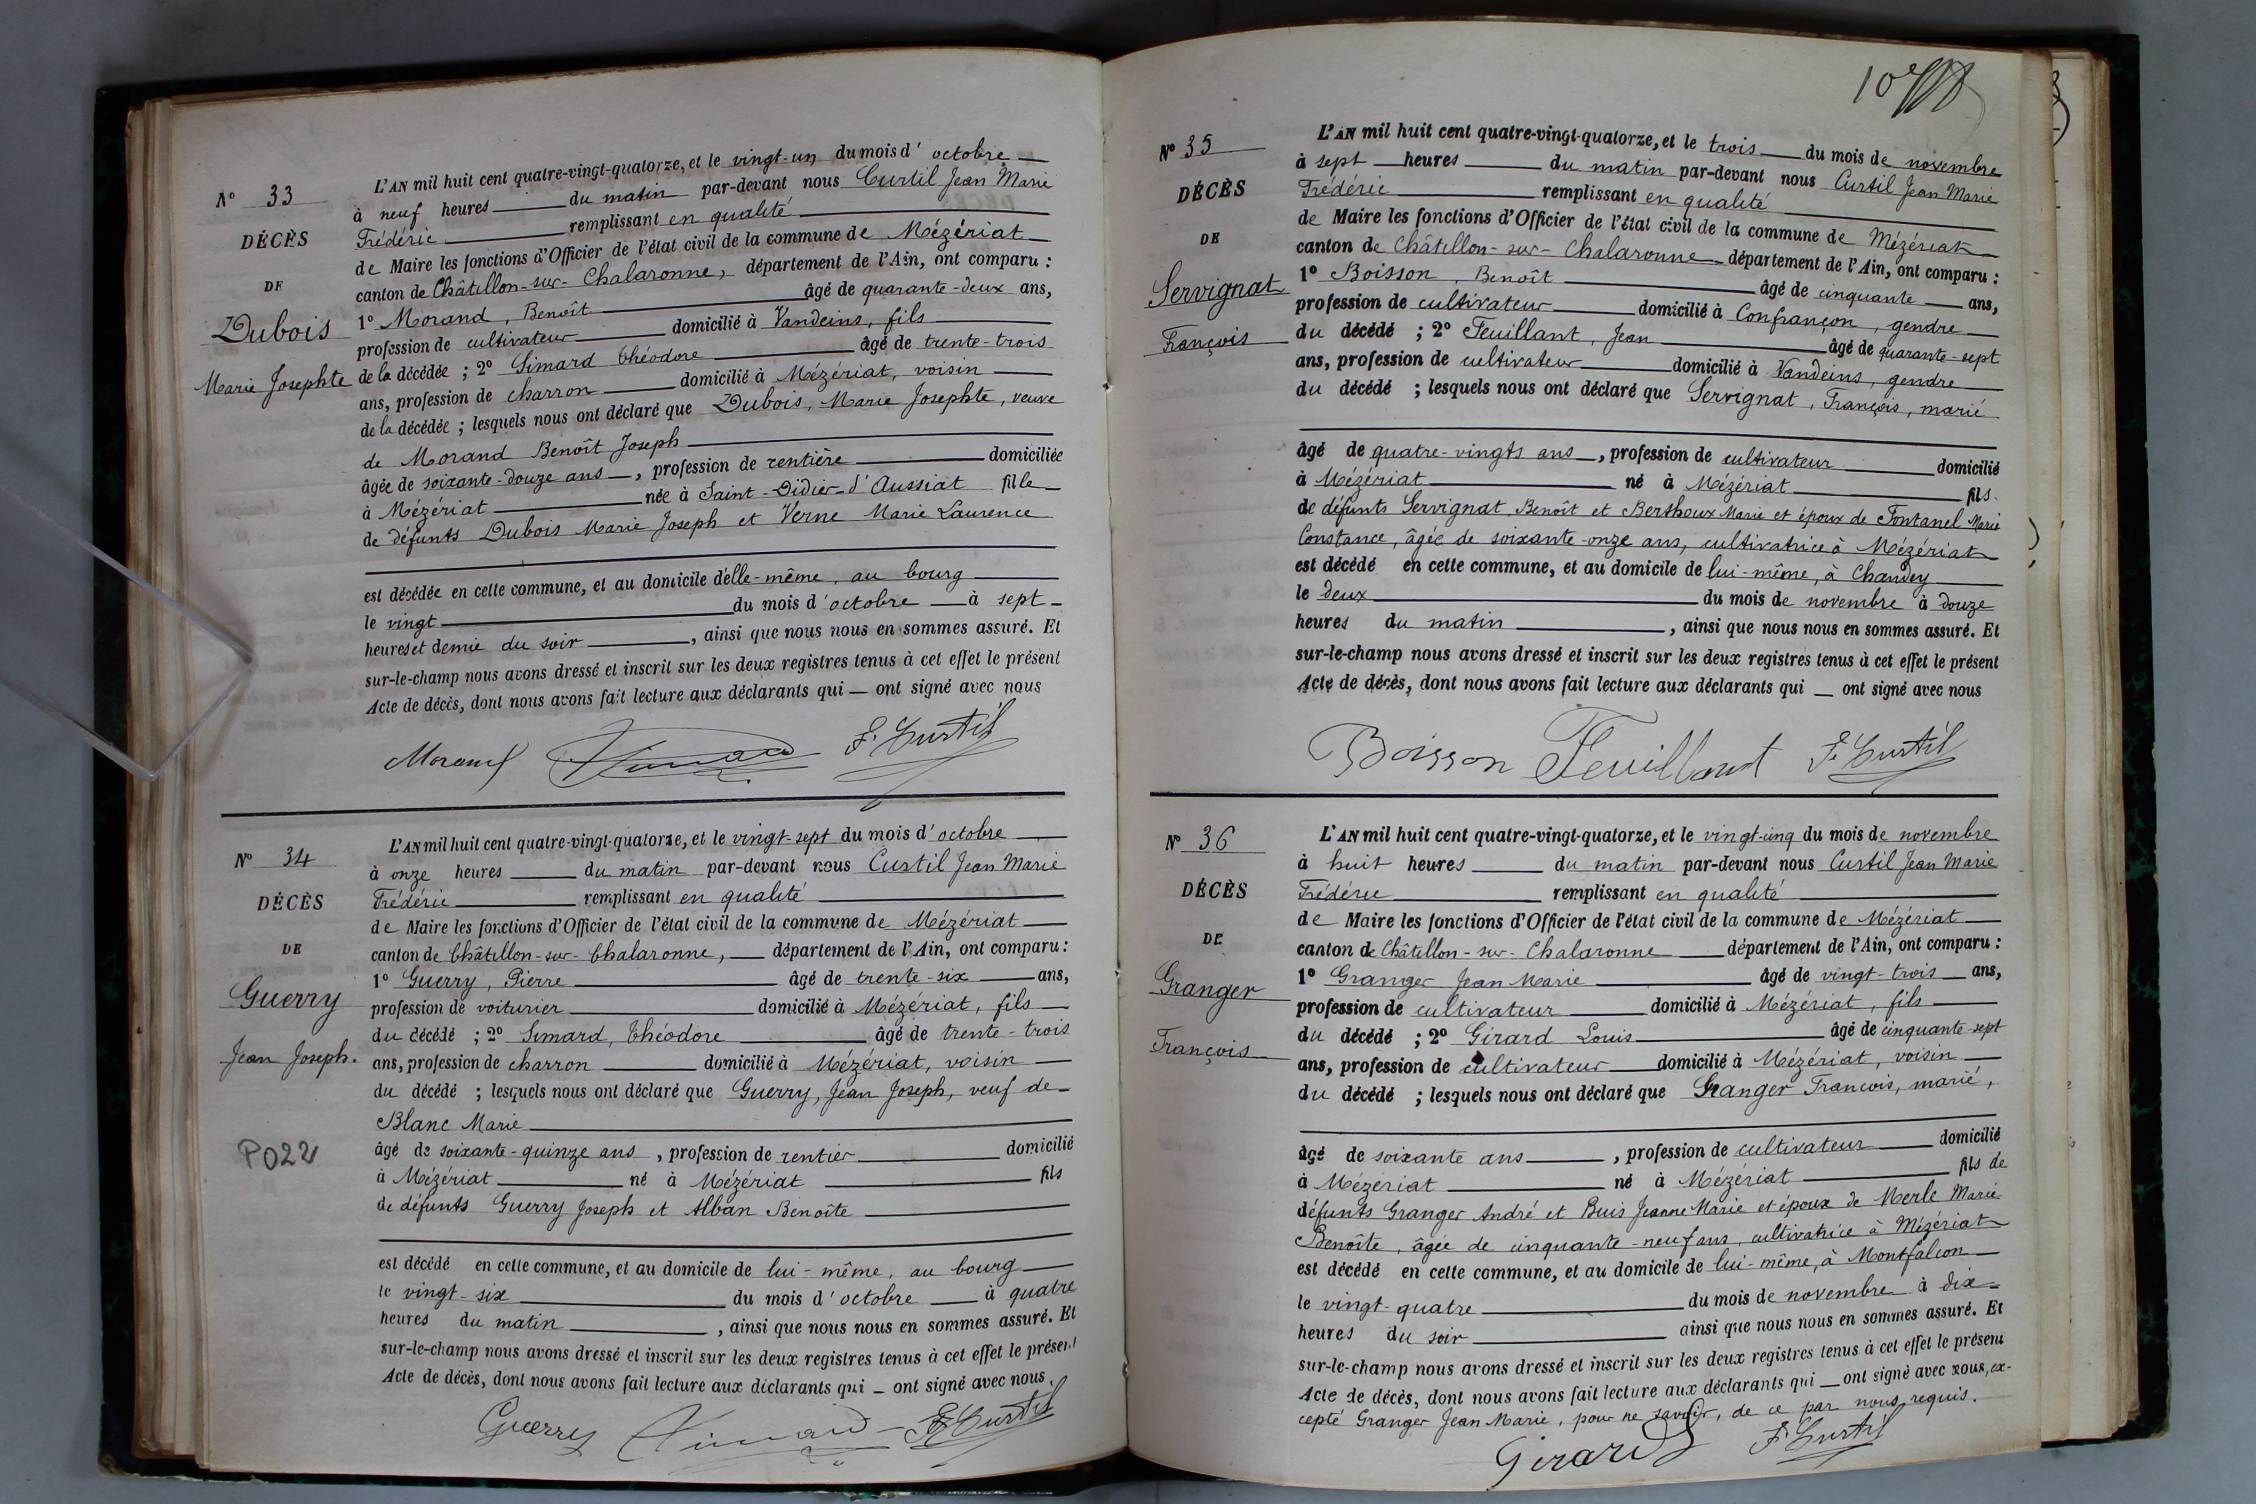 N° 33
DÉCÈS
DE
Dubois
Marie Josephte
L'AN mil huit cent quatre-vingt-quatorze, et le vingt-un du mois d'octobre
à neuf heures du matin par-devant nous Curtil Jean Marie
Frédéric remplissant en qualité
de Maire les fonctions d'Officier de l'état civil de la commune de Mézériat
canton de Châtillon-sur-Chalaronne, département de l'Ain, ont comparu :
1° Morand, Benoît âgé de quarante-deux ans,
profession de cultivateur domicilié à Vandeins, fils
de la décédée ; 2° Simard Théodore âgé de trente-trois
ans, profession de charron domicilié à Mézériat, voisin
de la décédée ; lesquels nous ont déclaré que Dubois, Marie Josephte, veuve
de Morand Benoît Joseph
âgée de soixante-douze ans, profession de rentière domiciliée
à Mézériat née à Saint-Didier-d'Aussiat fille
de défunts Dubois Marie Joseph et Verne Marie Laurence
est décédée en cette commune, et au domicile d'elle-même, au bourg
le vingt du mois d'octobre à sept
heures et demie du soir, ainsi que nous nous en sommes assuré. Et
sur-le-champ nous avons dressé et inscrit sur les deux registres tenus à cet effet le présent
Acte de décès, dont nous avons fait lecture aux déclarants qui — ont signé avec nous
Morand Simard F. Curtil
N° 34
DÉCÈS
DE
Guerry
Jean Joseph.
P022
L'AN mil huit cent quatre-vingt-quatorze, et le vingt-sept du mois d'octobre
à onze heures du matin par-devant nous Curtil Jean Marie
Frédéric remplissant en qualité
de Maire les fonctions d'Officier de l'état civil de la commune de Mézériat
canton de Châtillon-sur-Chalaronne, département de l'Ain, ont comparu :
1° Guerry, Pierre âgé de trente-six ans,
profession de voiturier domicilié à Mézériat, fils
du décédé ; 2° Simard, Théodore âgé de trente-trois
ans, profession de charron domicilié à Mézériat, voisin
du décédé ; lesquels nous ont déclaré que Guerry, Jean Joseph, veuf de
Blanc Marie
âgé de soixante-quinze ans, profession de rentier domicilié
à Mézériat né à Mézériat fils
de défunts Guerry Joseph et Alban Benoîte
est décédé en cette commune, et au domicile de lui-même, au bourg
le vingt-six du mois d'octobre à quatre
heures du matin, ainsi que nous nous en sommes assuré. Et
sur-le-champ nous avons dressé et inscrit sur les deux registres tenus à cet effet le présent
Acte de décès, dont nous avons fait lecture aux déclarants qui — ont signé avec nous.
Guerry Simard F. Curtil
10e
N° 35
DÉCÈS
DE
Servignat
François
L'AN mil huit cent quatre-vingt-quatorze, et le trois du mois de novembre
à sept heures du matin par-devant nous Curtil Jean Marie
Frédéric remplissant en qualité
de Maire les fonctions d'Officier de l'état civil de la commune de Mézériat
canton de Châtillon-sur-Chalaronne département de l'Ain, ont comparu :
1° Boisson, Benoît âgé de cinquante ans,
profession de cultivateur domicilié à Confrançon, gendre
du décédé ; 2° Feuillant, Jean âgé de quarante-sept
ans, profession de cultivateur domicilié à Vandeins, gendre
du décédé ; lesquels nous ont déclaré que Servignat, François, marié
âgé de quatre-vingts ans, profession de cultivateur domicilié
à Mézériat né à Mézériat fils
de défunts Servignat Benoît et Berthoux Marie et époux de Fontanel Marie
Constance, âgée de soixante-onze ans, cultivatrice à Mézériat
est décédé en cette commune, et au domicile de lui-même, à Chandey
le deux du mois de novembre à douze
heures du matin, ainsi que nous nous en sommes assuré. Et
sur-le-champ nous avons dressé et inscrit sur les deux registres tenus à cet effet le présent
Acte de décès, dont nous avons fait lecture aux déclarants qui — ont signé avec nous
Boisson Feuillant F. Curtil
N° 36
DÉCÈS
DE
Granger
François
L'AN mil huit cent quatre-vingt-quatorze, et le vingt-cinq du mois de novembre
à huit heures du matin par-devant nous Curtil Jean Marie
Frédéric remplissant en qualité
de Maire les fonctions d'Officier de l'état civil de la commune de Mézériat
canton de Châtillon-sur-Chalaronne département de l'Ain, ont comparu :
1° Granger Jean Marie âgé de vingt-trois ans,
profession de cultivateur domicilié à Mézériat, fils
du décédé ; 2° Girard Louis âgé de cinquante-sept
ans, profession de cultivateur domicilié à Mézériat, voisin
du décédé ; lesquels nous ont déclaré que Granger François, marié,
âgé de soixante ans, profession de cultivateur domicilié
à Mézériat né à Mézériat fils de
défunts Granger André et Buis Jeanne Marie et époux de Merle Marie
Benoîte, âgée de cinquante-neuf ans, cultivatrice à Mézériat
est décédé en cette commune, et au domicile de lui-même, à Montfalcon
le vingt-quatre du mois de novembre à dix
heures du soir ainsi que nous nous en sommes assuré. Et
sur-le-champ nous avons dressé et inscrit sur les deux registres tenus à cet effet le présent
Acte de décès, dont nous avons fait lecture aux déclarants qui — ont signé avec nous, ex-
cepté Granger Jean Marie, pour ne savoir, de ce par nous requis.
Girard F. Curtil